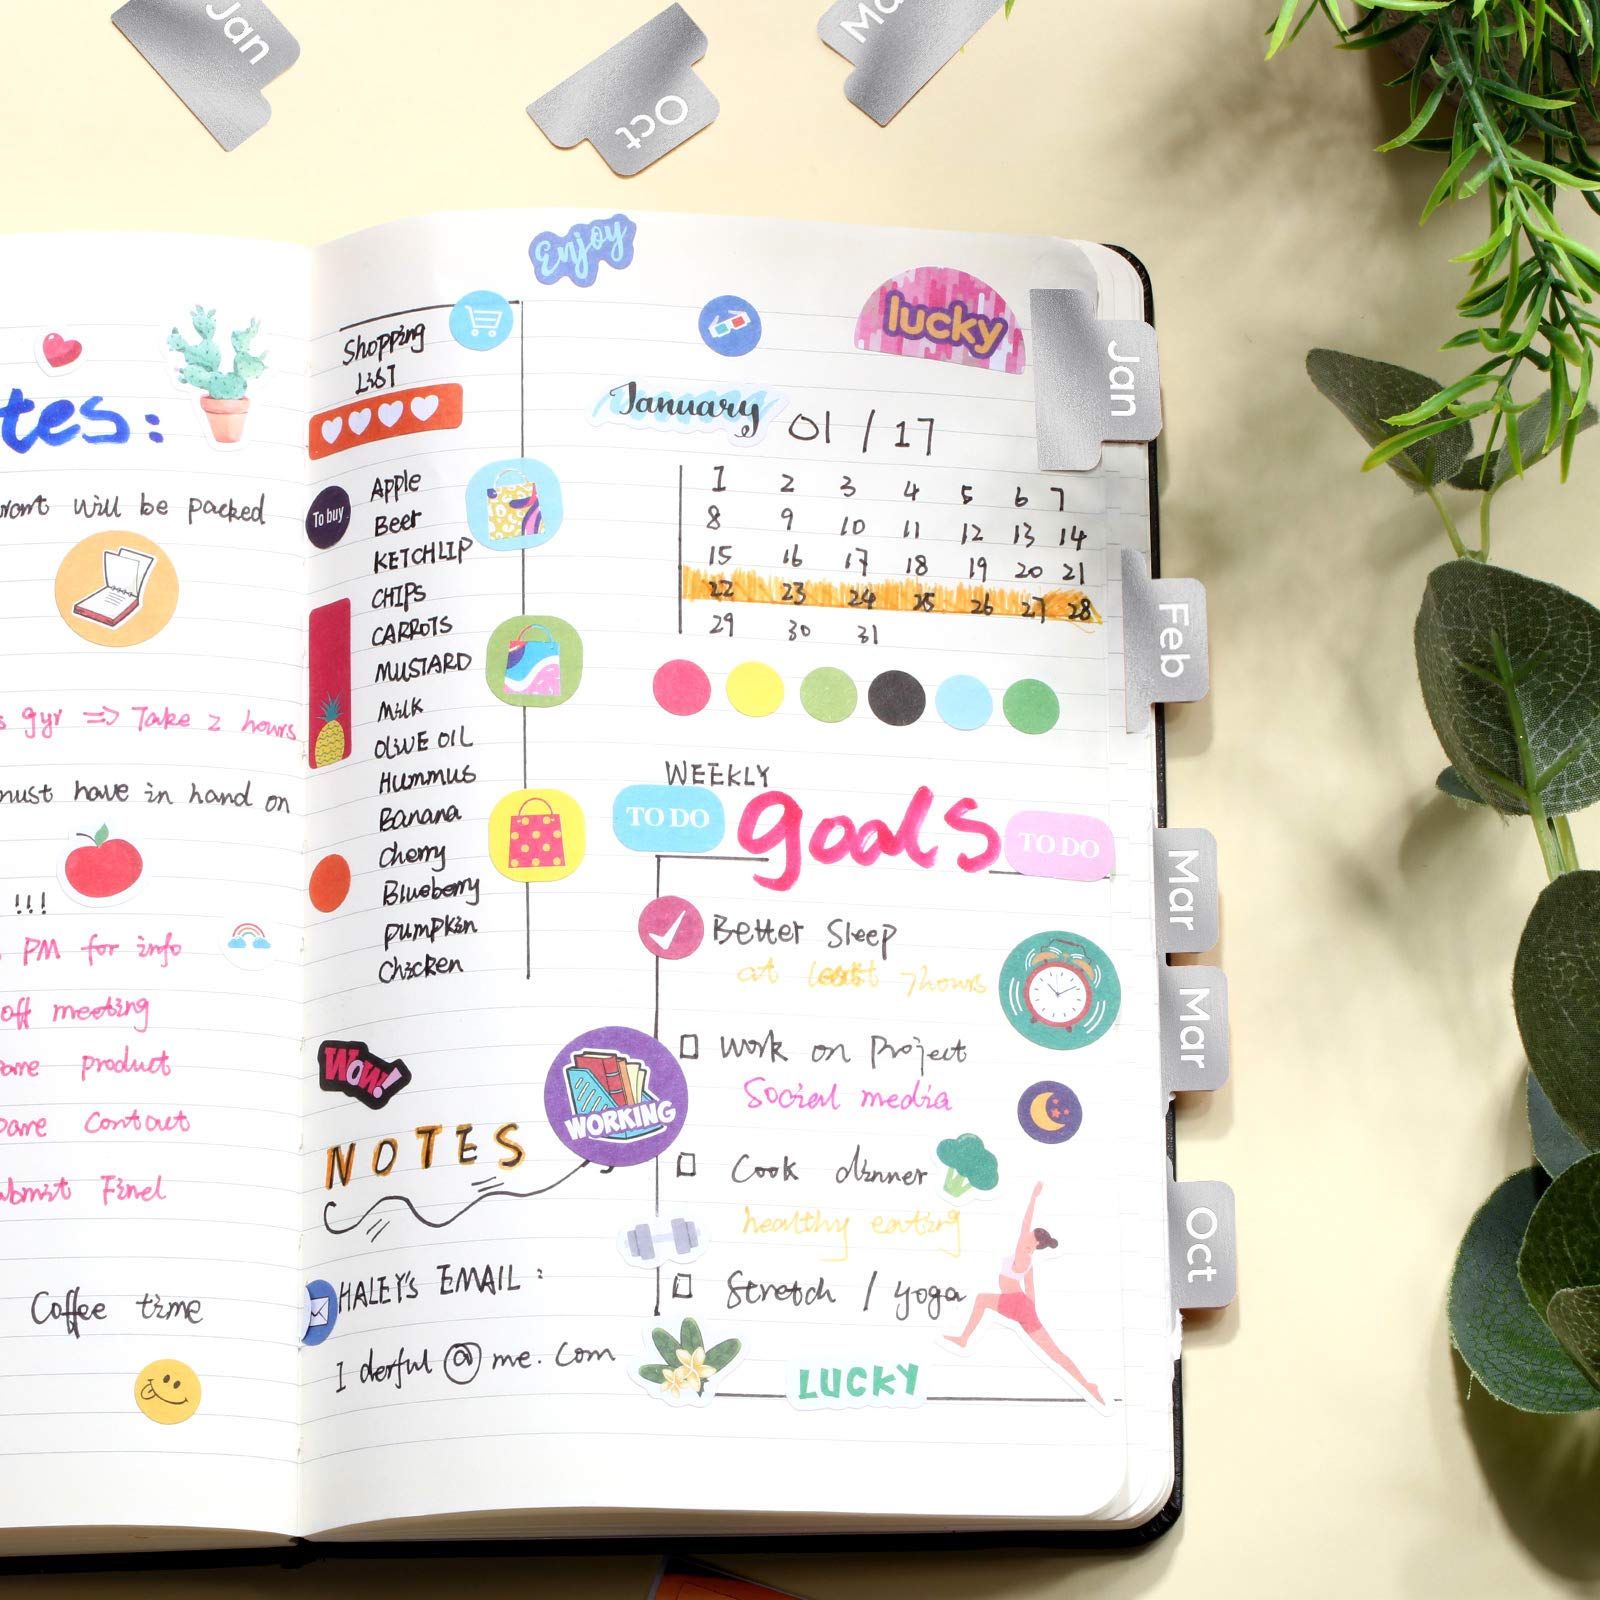 Jan
Oct
Enjoy
lucky
Jan
Feb
Mar
Mar
Oct
tes:
will be packed
gyr => Take 2 hours
must have in hand on
!!!
PM for info
off meeting
product
Contact
Finel
Coffee time
Shopping
LIST
To buy
Apple
Beer
KETCHLIP
CHIPS
CARROTS
MUSTARD
Milk
OLIVE OIL
Hummus
Banana
Cherry
Blueberry
Pumpkin
Chicken
Wow!
NOTES
WORKING
HALEY's EMAIL :
I derful @ me. Com
January 01 / 17
1 2 3 4 5 6 7
8 9 10 11 12 13 14
15 16 17 18 19 20 21
22 23 24 25 26 27 28
29 30 31
WEEKLY
TO DO goals TO DO
Better Sleep
at least 7hours
Work on Project
Social media
Cook dinner
healthy eating
Stretch / yoga
LUCKY